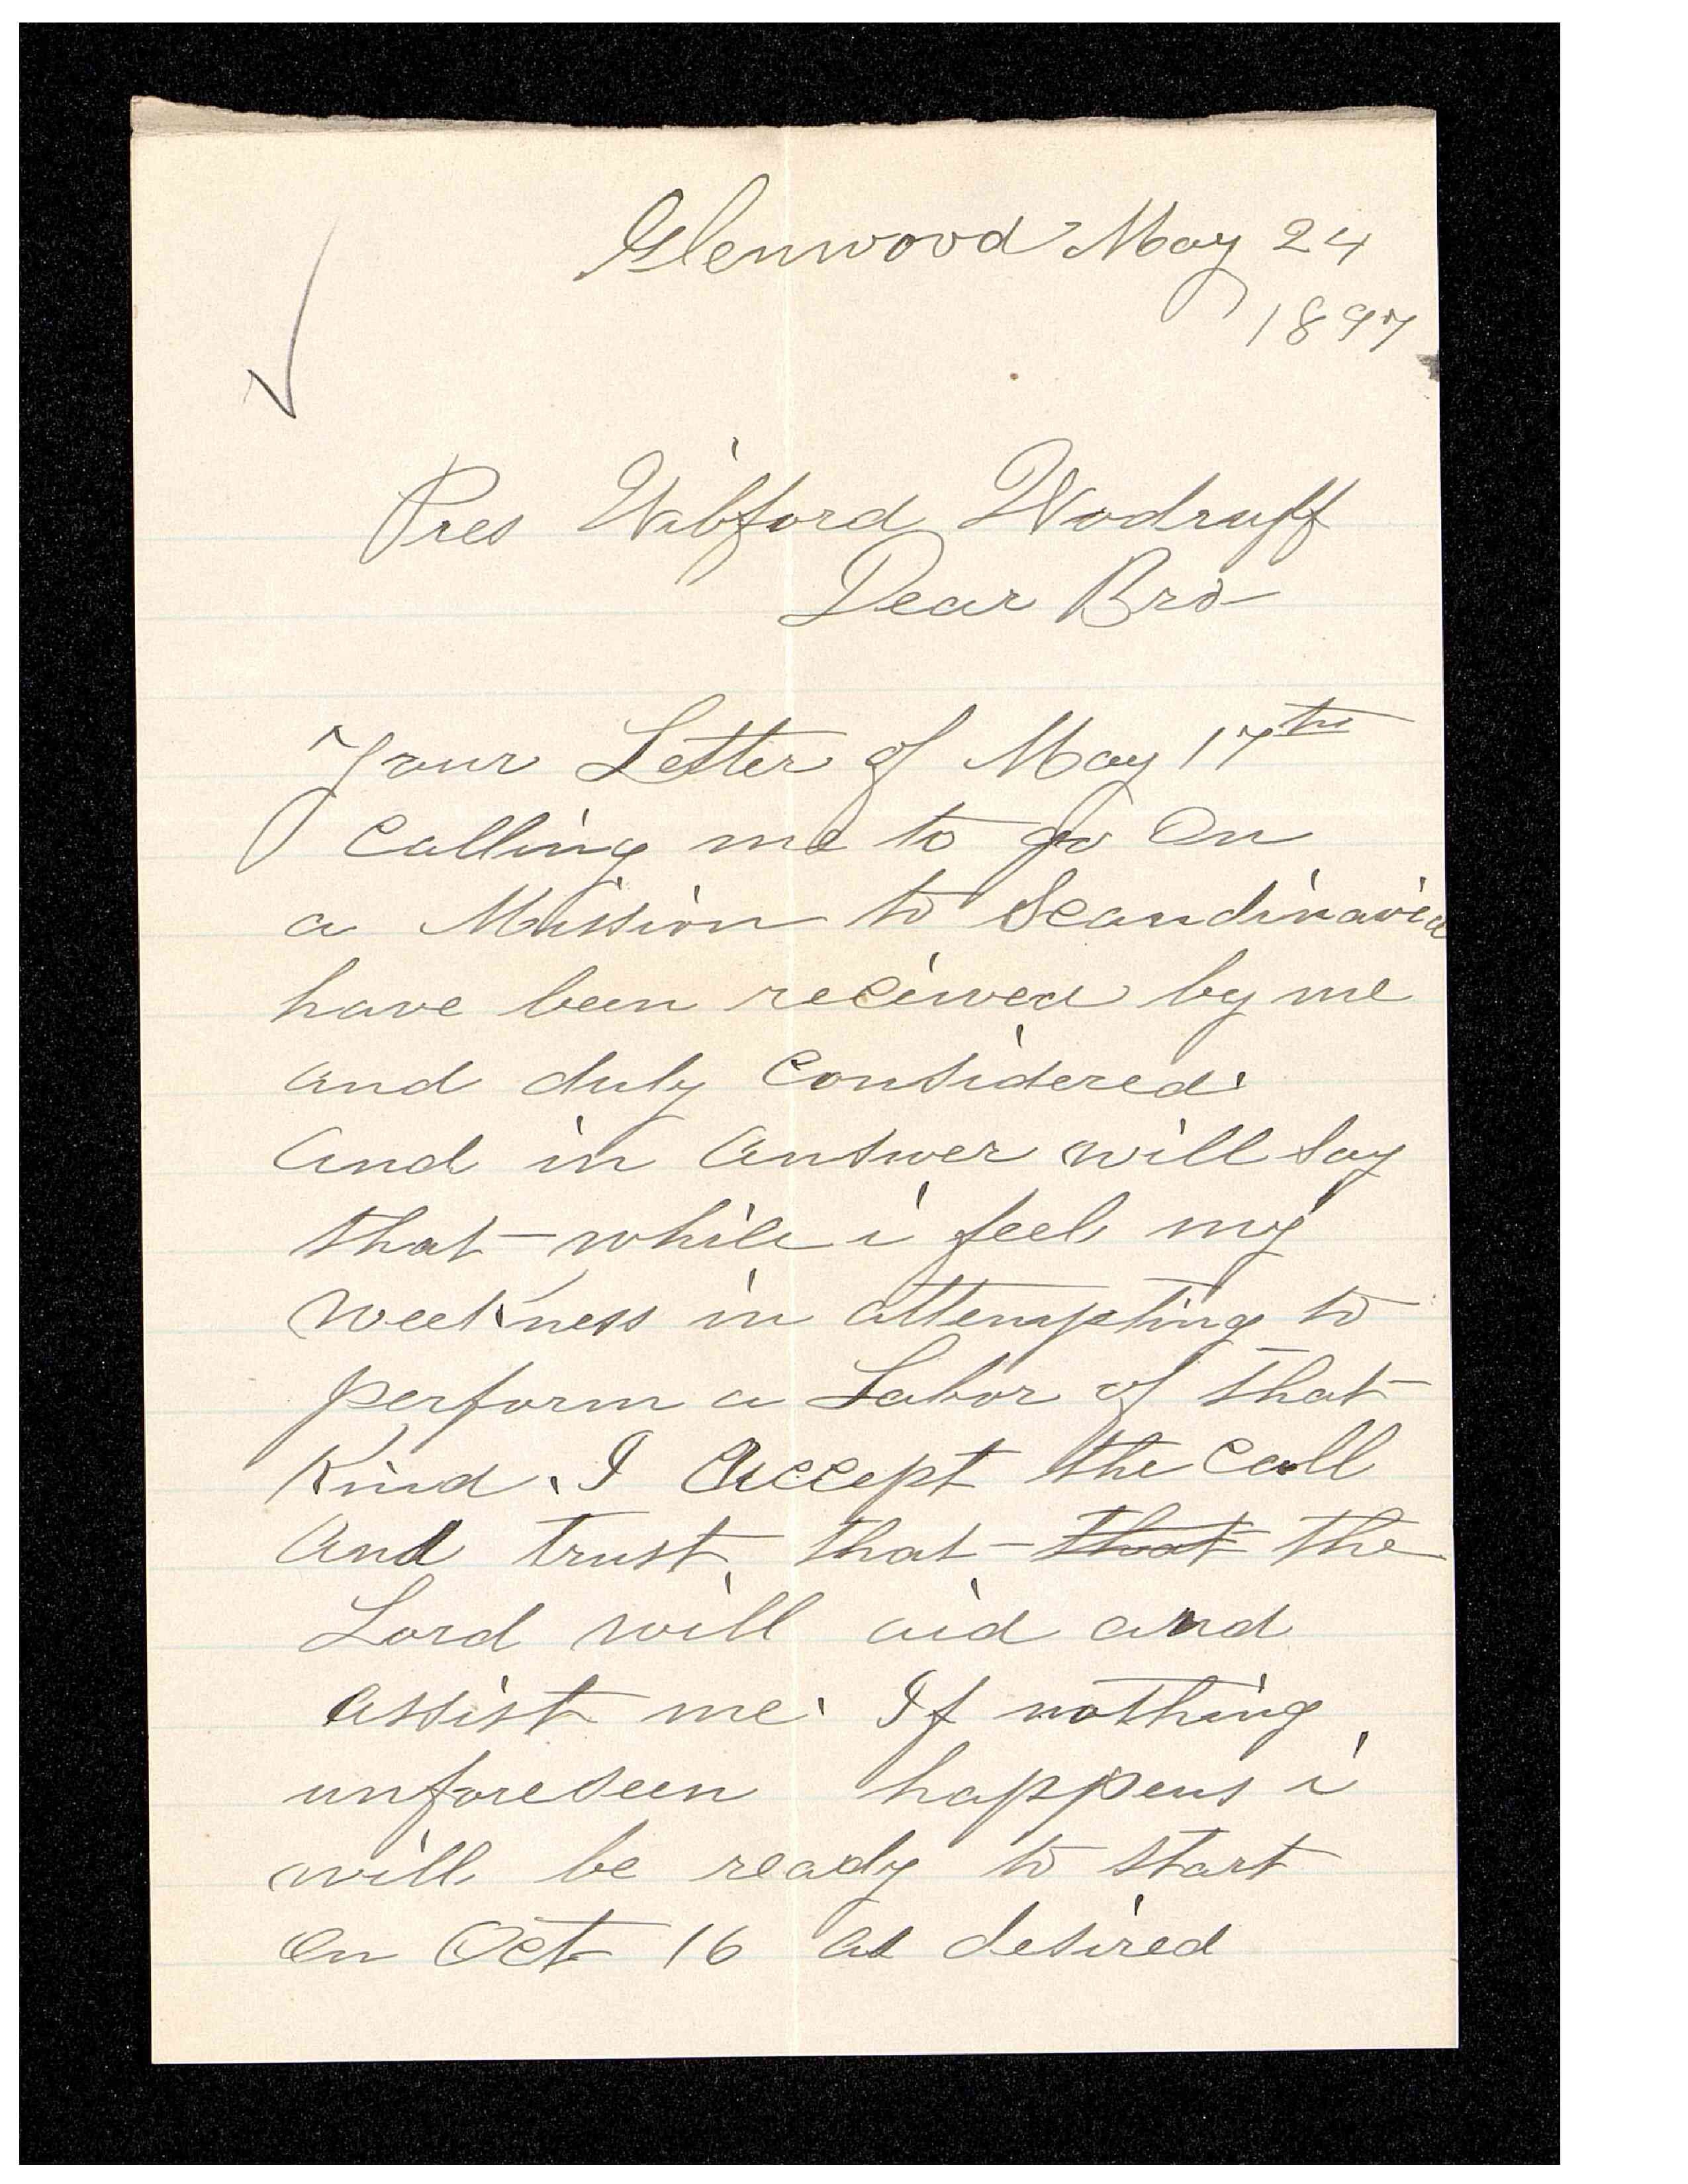 Glenwood May 24
1897
Pres Wilford Wodruff
Dear Bro
Your Letter of May 17th
Calling me to go On
a Mission to Scandinavia
have been recieved by me
and duly Considered.
And in Answer will say
that while i feel my
weekness in attempting to
perform a Labor of that
Kind. I Accept the Call
And trust that ~~that~~ the
Lord will aid and
assist me. If nothing
unforeseen happens i
will be ready to start
On Oct 16 as desired